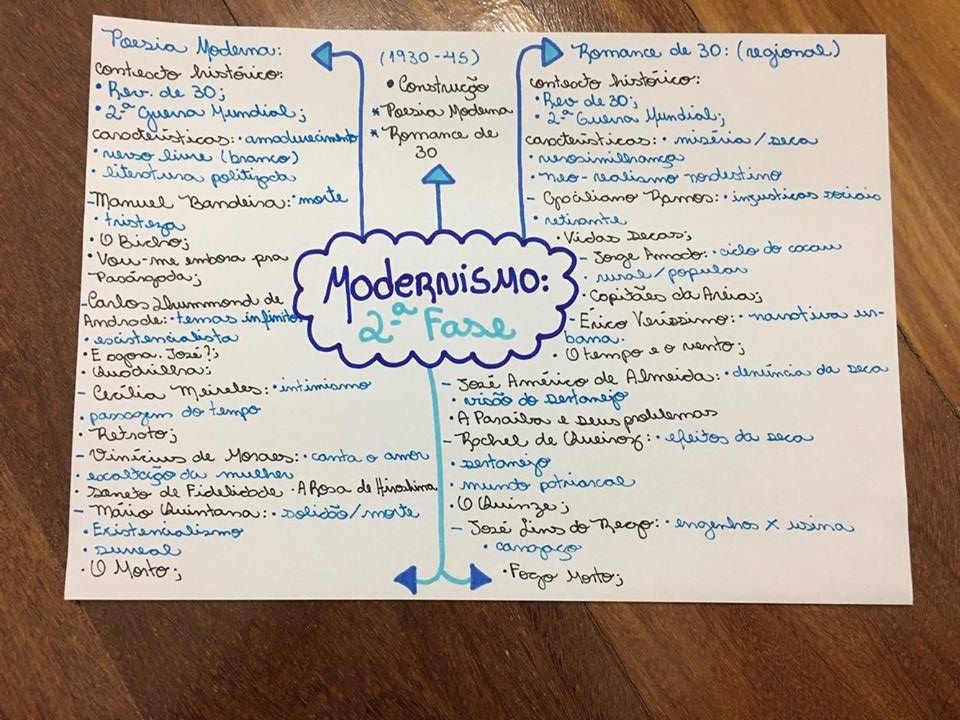 Poesia Moderna:
contexto histórico:
• Rev. de 30;
• 2ª Guerra Mundial;
características: • amadurecimento
• verso livre (branco)
• literatura politizada
- Manuel Bandeira: • morte
• tristeza
• O Bicho;
• Vou-me embora pra
Pasárgada;
- Carlos Drummond de
Andrade: • temas infinitos
• existencialista
• E agora. José?;
• Quadrilha;
- Cecília Meireles: • intimismo
• passagem do tempo
• Retrato;
- Vinícius de Moraes: • canta o amor
• exaltação da mulher
• Soneto de Fidelidade • A Rosa de Hiroshima
- Mário Quintana: • solidão/morte
• Existencialismo
• surreal
• O Morto;
(1930-45)
• Construção
* Poesia Moderna
* Romance de
30
Modernismo:
2ª Fase
Romance de 30: (regional)
contexto histórico:
• Rev de 30;
• 2ª Guerra Mundial;
características: • miséria/seca
• verosimilhança
• neo-realismo nordestino
- Graciliano Ramos: • injustiças sociais
• retirante
• Vidas Secas;
- Jorge Amado: • ciclo do cacau
• rural/popular
• Capitães da Areia;
- Érico Veríssimo: • narrativa ur-
bana.
• O tempo e o vento;
- José Américo de Almeida: • denúncia da seca
• visão do sertanejo
• A Paraíba e seus problemas
- Rachel de Queiroz: • efeitos da seca
• sertanejo
• mundo patriarcal
• O Quinze;
- José Lins do Rego: • engenhos x usina
• cangaço
• Fogo Morto;